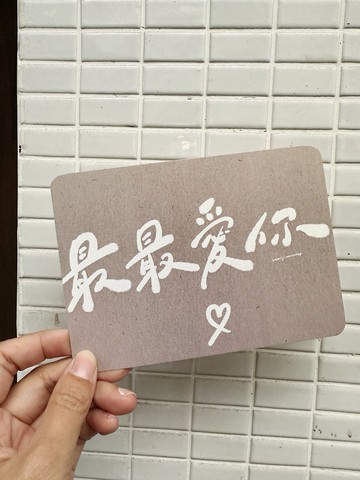 最最愛你